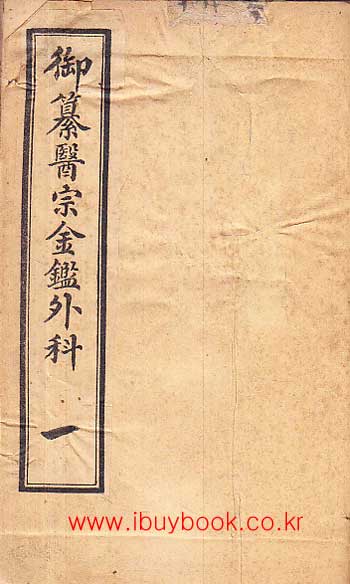 御纂醫宗金鑑外科 一
www.ibuybook.co.kr